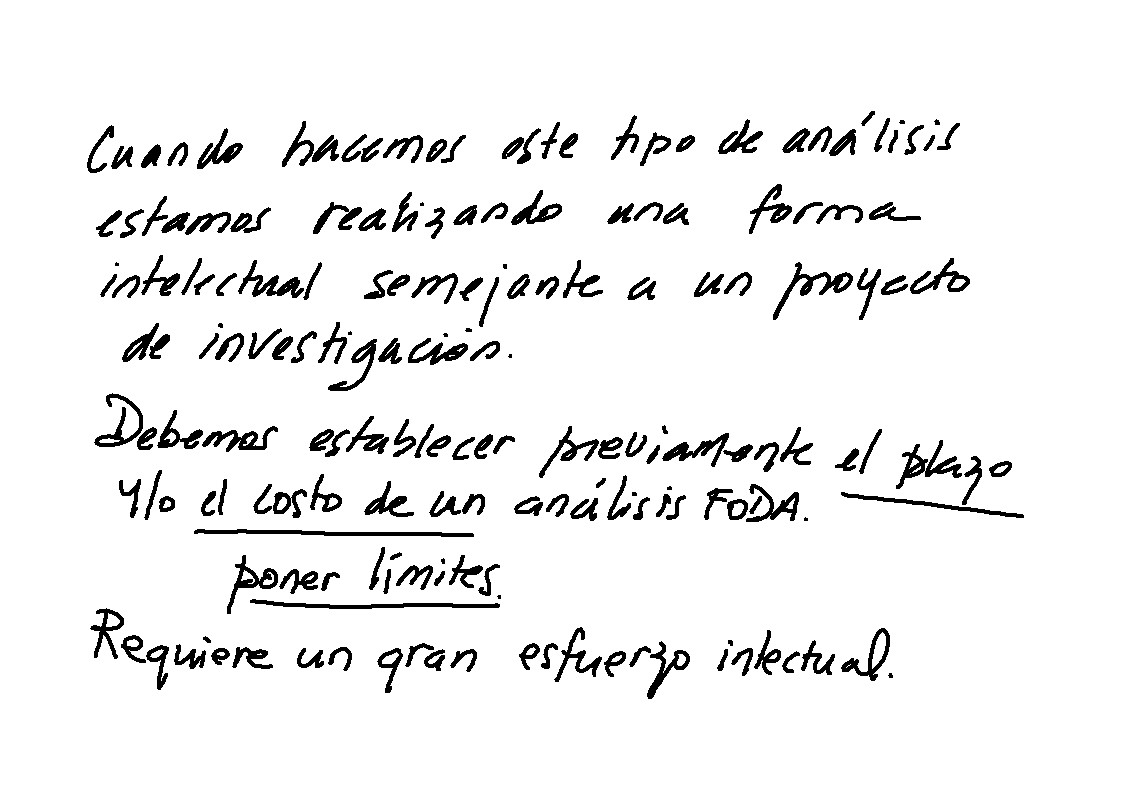 Cuando hacemos este tipo de análisis
estamos realizando una forma
intelectual semejante a un proyecto
de investigación.
Debemos establecer previamente el plazo
y/o el costo de un análisis FODA.
poner límites.
Requiere un gran esfuerzo intectual.